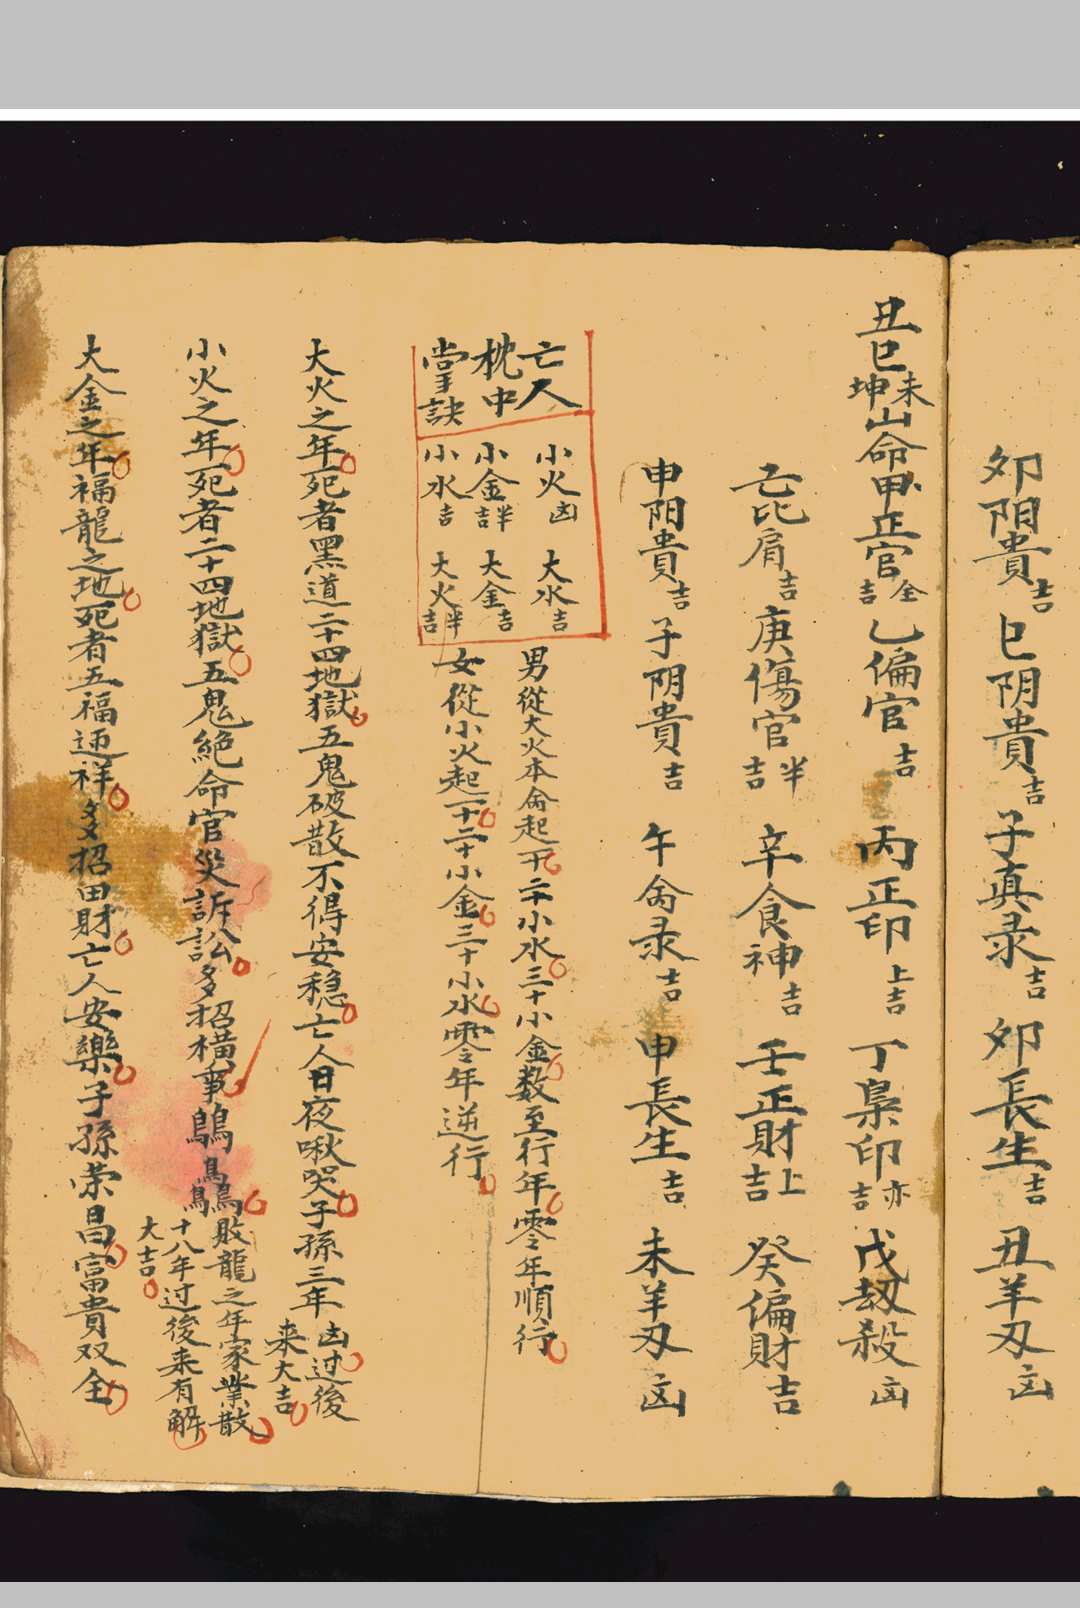 夘阳貴吉 巳阴貴吉 子真录吉 夘長生吉 丑羊刃凶
丑巳坤未山命甲正官全吉 乙偏官吉 丙正印上吉 丁梟印亦吉 戊刼殺凶
己比肩吉 庚傷官半吉 辛食神吉 壬正財上吉 癸偏財吉
申阳貴吉 子阴貴吉 午禽录吉 申長生吉 未羊刃凶
亡人
枕中
掌訣
小火凶 大水吉
小金半吉 大金吉
小水吉 大火半吉
男從大火本禽起一十二十小水三十小金数至行年零年順行
女從小火起一十二十小金三十小水零年逆行
大火之年死者黑道二十四地獄五鬼破散不得安穏亡人日夜啾哭子孫三年凶过後
来大吉
小火之年死者二十四地獄五鬼絶命官災訴訟多招橫事鵰鱻敗龍之年家業散
十八年过後来有解
大吉
大金之年福龍之地死者五福迊祥多招田財亡人安樂子孫荣昌富貴双全